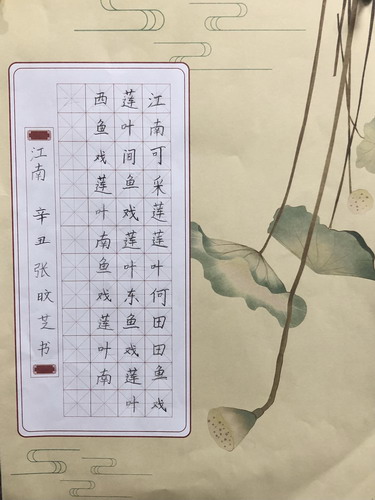 江南可采莲莲叶何田田鱼戏
莲叶间鱼戏莲叶东鱼戏莲叶
西鱼戏莲叶南鱼戏莲叶南
江南 辛丑 张旼芝书